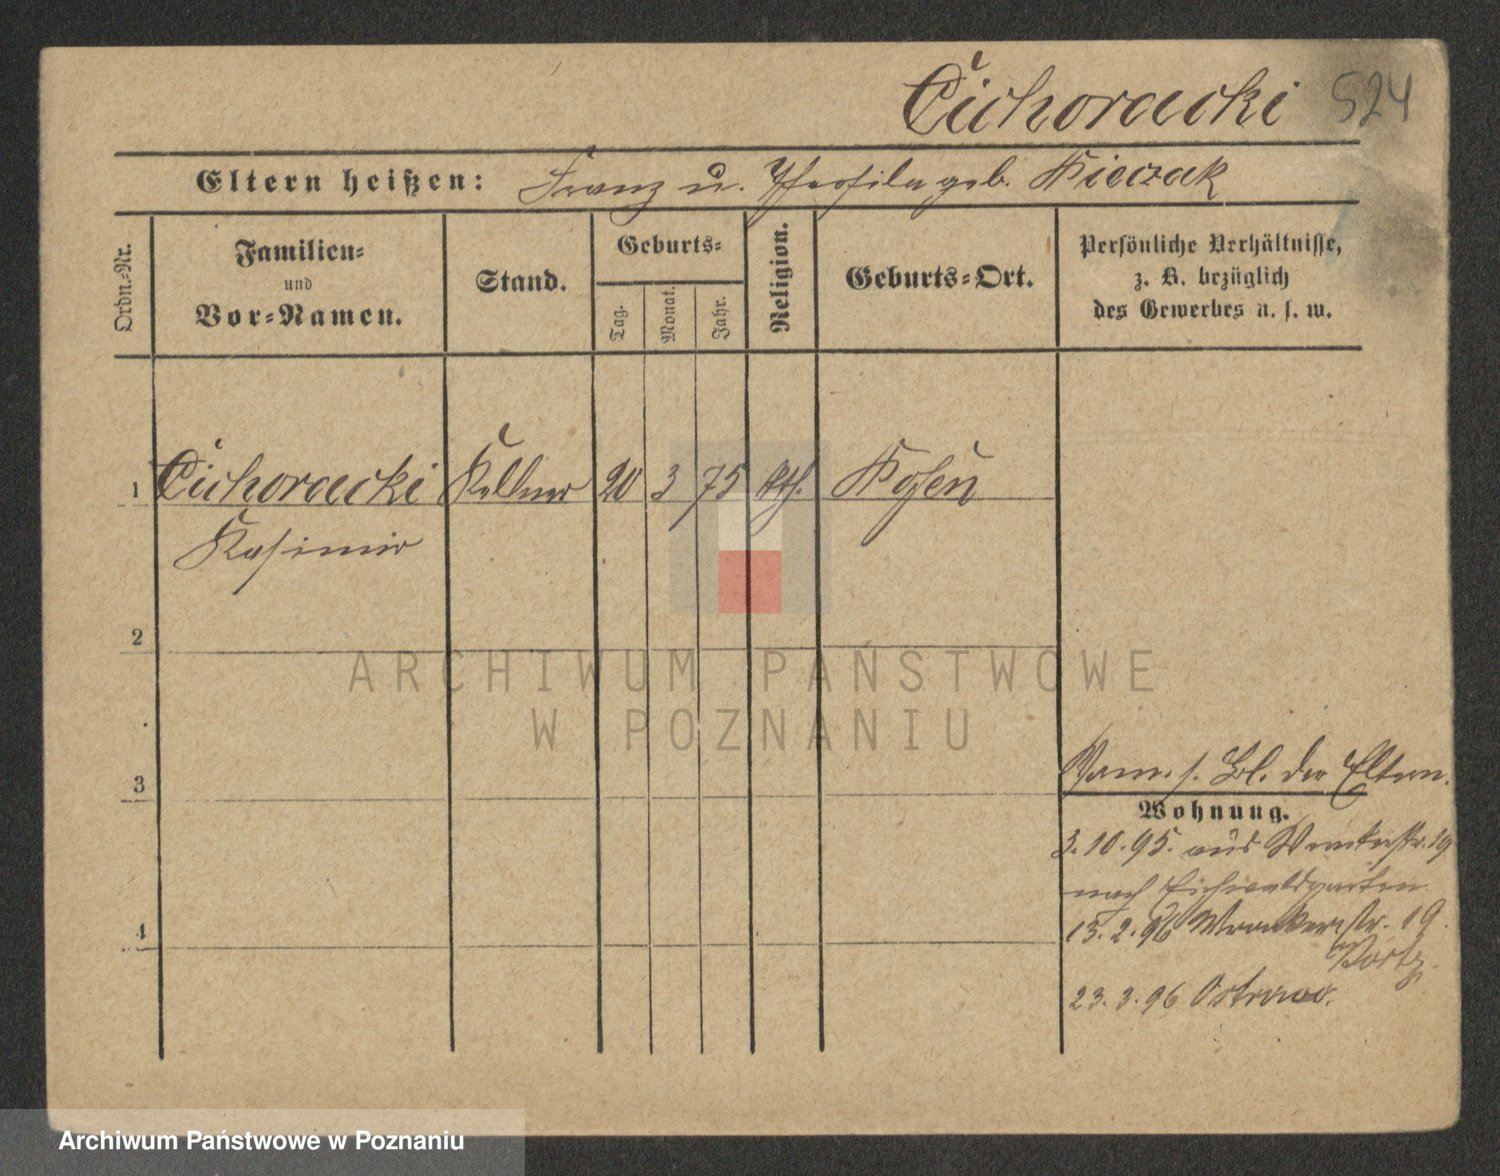 Cichoracki 524
Eltern heißen: Franz u. Theofila geb. Kieczak
Ordn.-Nr.
Familien-
und
Vor-Namen.
Stand.
Geburts-
Tag.
Monat.
Jahr.
Religion.
Geburts-Ort.
Persönliche Verhältnisse,
z. B. bezüglich
des Gewerbes u. s. w.
1 Cichoracki Kellner 20 3 75 kth. Posen
Kasimir
2
ARCHIWUM PAŃSTWOWE
W POZNANIU
3
Verm. s. Bl. der Eltern.
Wohnung.
3.10.95. aus 19
nach Eichwaldgarten
4
13.2.96 Wronkerstr. 19.
23.3.96 Ostrowo.
Archiwum Państwowe w Poznaniu